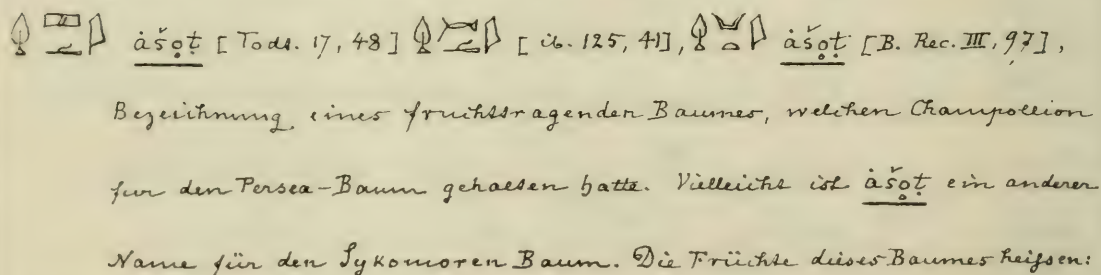 ȧšoṭ [Todt. 17, 48] [ib. 125, 41], ȧšoṭ [B. Rec. III, 97],
Bezeichnung eines fruchttragenden Baumes, welchen Champollion
fur den Persea-Baum gehalten hatte. Vielleicht ist ȧšoṭ ein anderer
Name für den Sykomoren Baum. Die Früchte dieses Baumes heißen: